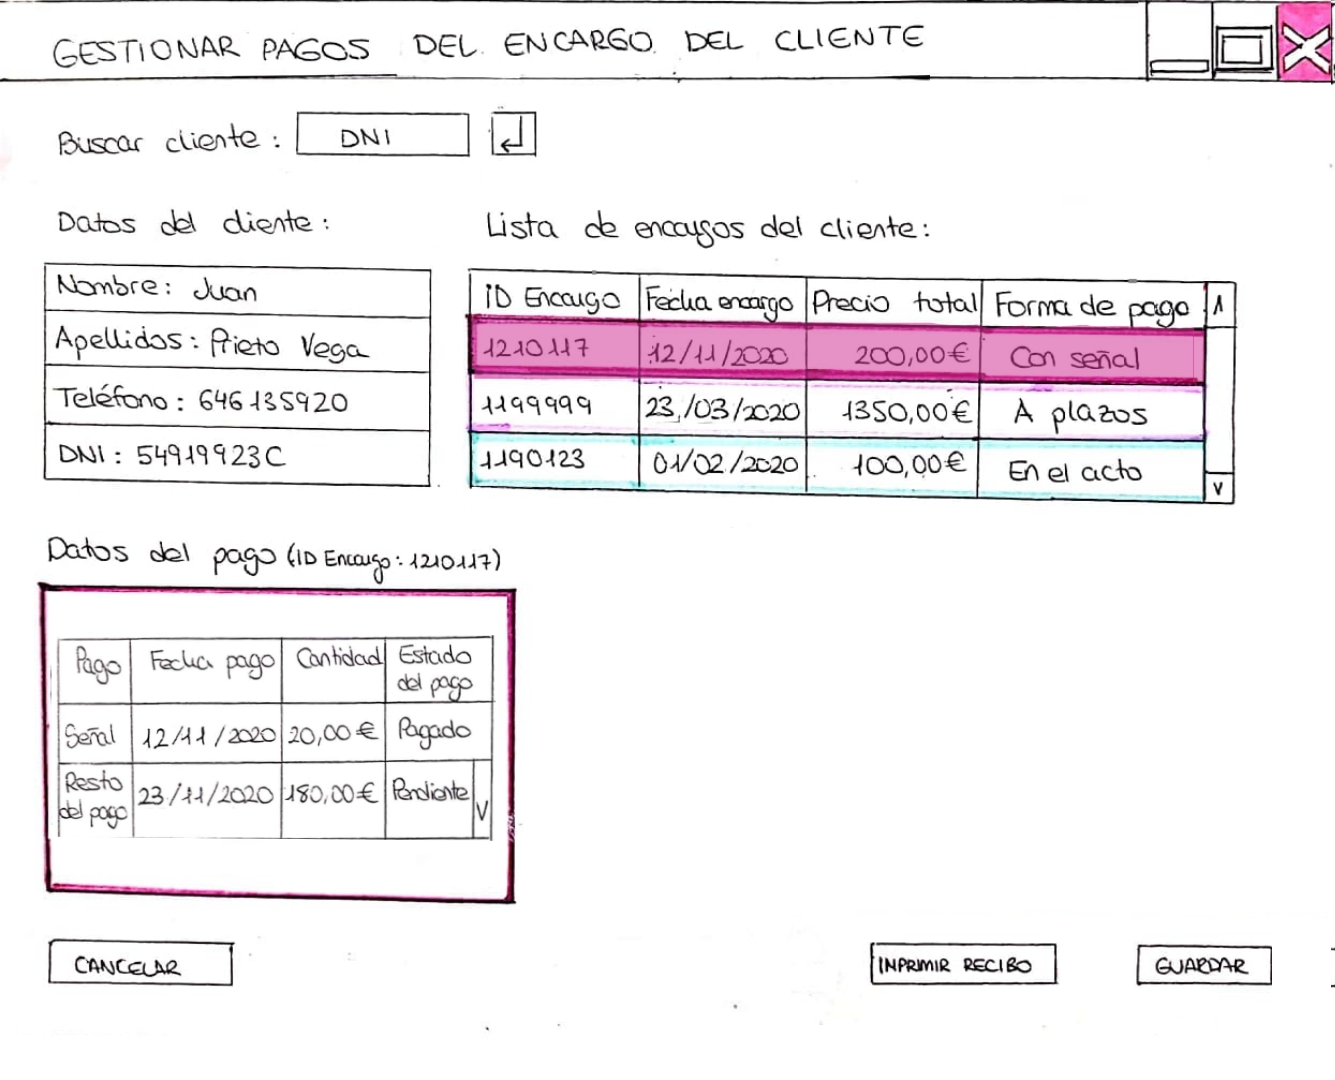 GESTIONAR PAGOS DEL ENCARGO DEL CLIENTE
Buscar cliente: DNI
Datos del cliente:
Nombre: Juan
Apellidos: Prieto Vega
Teléfono: 646135920
DNI: 54919923C
Lista de encargos del cliente:
ID Encargo Fecha encargo Precio total Forma de pago
1210117 12/11/2020 200,00€ Con señal
1199999 23/03/2020 1350,00€ A plazos
1190123 01/02/2020 100,00€ En el acto
Datos del pago (ID Encargo: 1210117)
Pago Fecha pago Cantidad Estado
del pago
Señal 12/11/2020 20,00€ Pagado
Resto
del pago 23/11/2020 180,00€ Pendiente
CANCELAR INPRIMIR RECIBO GUARDAR